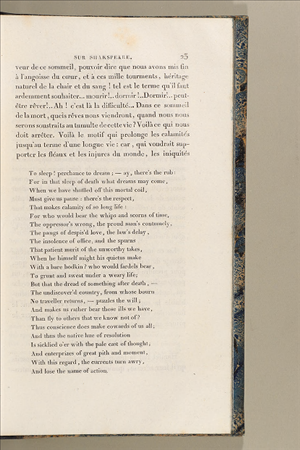 SUR SHAKSPEARE. 75
veur de ce sommeil, pouvoir dire que nous avons mis fin
à l'angoisse du cœur, et à ces mille tourments, héritage
naturel de la chair et du sang ! tel est le terme qu'il faut
ardemment souhaiter... mourir!.. dormir!.. Dormir!.. peut-
être rêver!.. Ah ! c'est là la difficulté... Dans ce sommeil
de la mort, quels rêves nous viendront, quand nous nous
serons soustraits au tumulte de cette vie ? Voilà ce qui nous
doit arrêter. Voilà le motif qui prolonge les calamités
jusqu'au terme d'une longue vie : car, qui voudrait sup-
porter les fléaux et les injures du monde, les iniquités
To sleep ! perchance to dream ; — ay, there's the rub ;
For in that sleep of death what dreams may come,
When we have shuffled off this mortal coil,
Must give us pause : there's the respect,
That makes calamity of so long life :
For who would bear the whips and scorns of time,
The oppressor's wrong, the proud man's contumely,
The pangs of despis'd love, the law's delay,
The insolence of office, and the spurns
That patient merit of the unworthy takes,
When he himself might his quietus make
With a bare bodkin ? who would fardels bear,
To grunt and sweat under a weary life;
But that the dread of something after death, —
The undiscover'd country, from whose bourn
No traveller returns, — puzzles the will ;
And makes us rather bear those ills we have,
Than fly to others that we know not of?
Thus conscience does make cowards of us all;
And thus the native hue of resolution
Is sicklied o'er with the pale cast of thought,
And enterprizes of great pith and moment,
With this regard, the currents turn awry,
And lose the name of action.